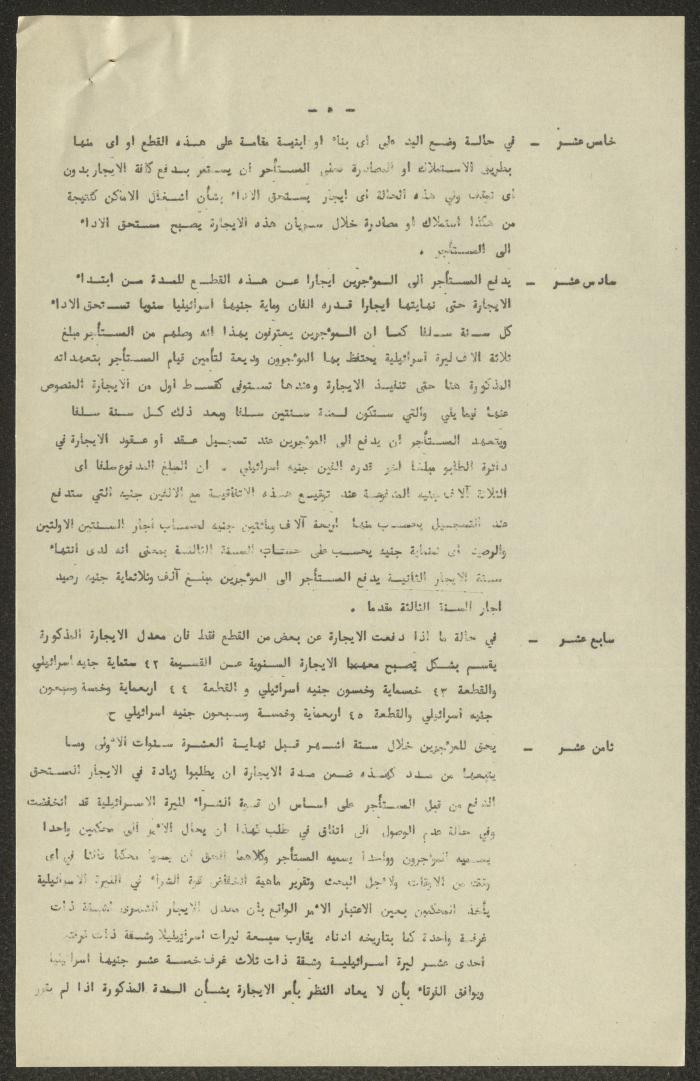 - ٥ -
خامس عشر - في حالة وضع اليد على اى بناء او ابنية مقامة على هذه القطع او اى منها
بطريق الاستملاك او المصادرة فعلى المستأجر ان يستمر بدفع كافة الايجار بدون
اى توقف وفي هذه الحالة اى ايجار يستحق الاداء بشأن اشغال الاماكن كنتيجة
من هكذا استملاك او مصادرة خلال سريان هذه الايجارة يصبح مستحق الاداء
الى المستأجر .
سادس عشر - يدفع المستأجر الى الموءجرين ايجارا عن هذه القطع للمدة من ابتداء
الايجارة حتى نهايتها ايجارا قدره الفان وماية جنيها اسرائيليا سنويا تستحق الاداء
كل سنة سلفا كما ان الموءجرين يعترفون بهذا انه وصلهم من المستأجر مبلغ
ثلاثة الاف ليرة اسرائيلية يحتفظ بها الموءجرون وديعة لتأمين قيام المستأجر بتعهداته
المذكورة هنا حتى تنفيذ الايجارة وعندها تستوفى كقسط اول من الايجارة المنصوص
عنها فيما يلي والتي ستكون لمدة سنتين سلفا وبعد ذلك كل سنة سلفا
ويتعهد المستأجر ان يدفع الى الموءجرين عند تسجيل عقد أو عقود الايجارة في
دائرة الطابو مبلغا اخر قدره الفين جنيه اسرائيلي . ان المبلغ المدفوع سلفا اى
الثلاثة آلاف جنيه المدفوعة عند توقيع هذه الاتفاقية مع الالفين جنيه التي ستدفع
عند التسجيل يحسب منها اربعة آلاف ومائتين جنيه لحساب اجار السنتين الاولتين
والرصيد اى ثمنماية جنيه يحسب على حساب السنة الثالثة بمعنى انه لدى انتهاء
سنة الايجار الثانية يدفع المستأجر الى الموءجرين مبلغ آلف وثلاثماية جنيه رصيد
اجار السنة الثالثة مقدما .
سابع عشر - في حالة ما اذا دفعت الايجارة عن بعض من القطع فقط فان معدل الايجارة المذكورة
يقسم بشكل يصبح معها الايجارة السنوية عن القسيمة ٤٢ ستماية جنيه اسرائيلي
والقطعة ٤٣ خمسماية وخمسون جنيه اسرائيلي و القطعة ٤٤ اربعماية وخمسة وسبعون
جنيه اسرائيلي والقطعة ٤٥ اربعماية وخمسة وسبعون جنيه اسرائيلي ح
ثامن عشر - يحق للموءجرين خلال ستة اشهر قبل نهاية العشرة سنوات الاولى وما
يتبعها من مدد كهذه ضمن مدة الايجارة ان يطلبوا زيادة في الايجار المستحق
الدفع من قبل المستأجر على اساس ان قوة الشراء لليرة الاسرائيلية قد انخفضت
وفي حالة عدم الوصول الى اتفاق في طلب كهذا ان يحال الامر الى محكمين واحدا
يسميه الموءجرون وواحدا يسميه المستأجر وكلاهما الحق ان يسميا محكما ثالثا في اى
وقت من الاوقات ولاجل البحث وتقرير ماهية انخفاض قوة الشراء في الليرة الاسرائيلية
يأخذ المحكمون بعين الاعتبار الامر الواقع بأن معدل الايجار الشهرى لشقة ذات
غرفة واحدة كما بتاريخه ادناه يقارب سبعة ليرات اسرائيلية وشقة ذات غرفتين
احدى عشر ليرة اسرائيلية وشقة ذات ثلاث غرف خمسة عشر جنيها اسرائيليا
ويوافق الفرقاء بأن لا يعاد النظر بأمر الايجارة بشأن المدة المذكورة اذا لم يقرر